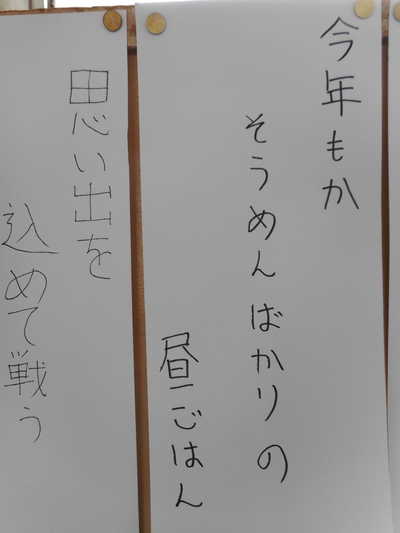 今年もか
そうめんばかりの
昼ごはん
思い出を
込めて戦う